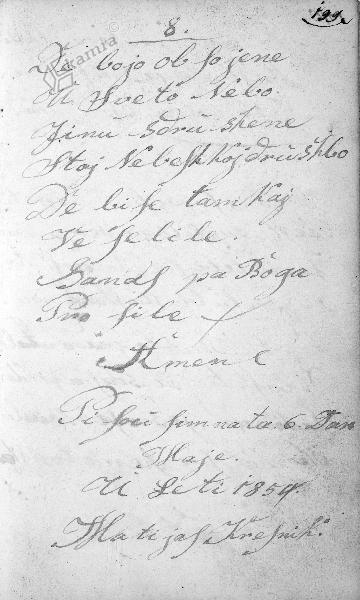 199.
8.
De bojo ob sojene
U Sveto Nebo.
Jinu sdru shene
Stoj Nebeshkoj drushbo
De bi se tam kaj
Ve se li le.
Sa nas pa Boga
Pro sile
Amen
Pi ſou ſim na ta 6. Dan
Maje.
U Leti 1854.
Matijaſ Kreſnik.
kamra